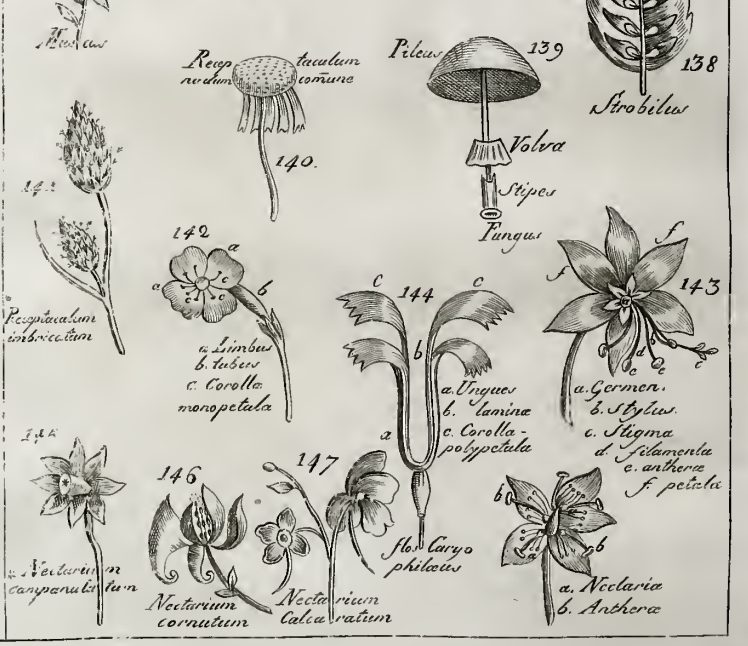 Muscus
Recep taculum
nudum comūne
140.
Pileus
139
Volva
Stipes
Fungus
138
Strobilus
141
Receptaculum
imbricatum
142
a
b
c
a Limbus
b. tubus
c. Corolla
monopetala
c 144 c
b
a
a. Ungues
b. laminæ
c. Corolla-
polypetala
flos Caryo
philæus
f f
143
d
e e
c
a. Germen.
b. Stylus.
c. Stigma
d filamenta
e. antheræ
f. petala
* Nectarium
campanulatum
146
Nectarium
cornutum
147
Necta rium
Calca ratum
b
b
a. Nectaria
b. Antheræ